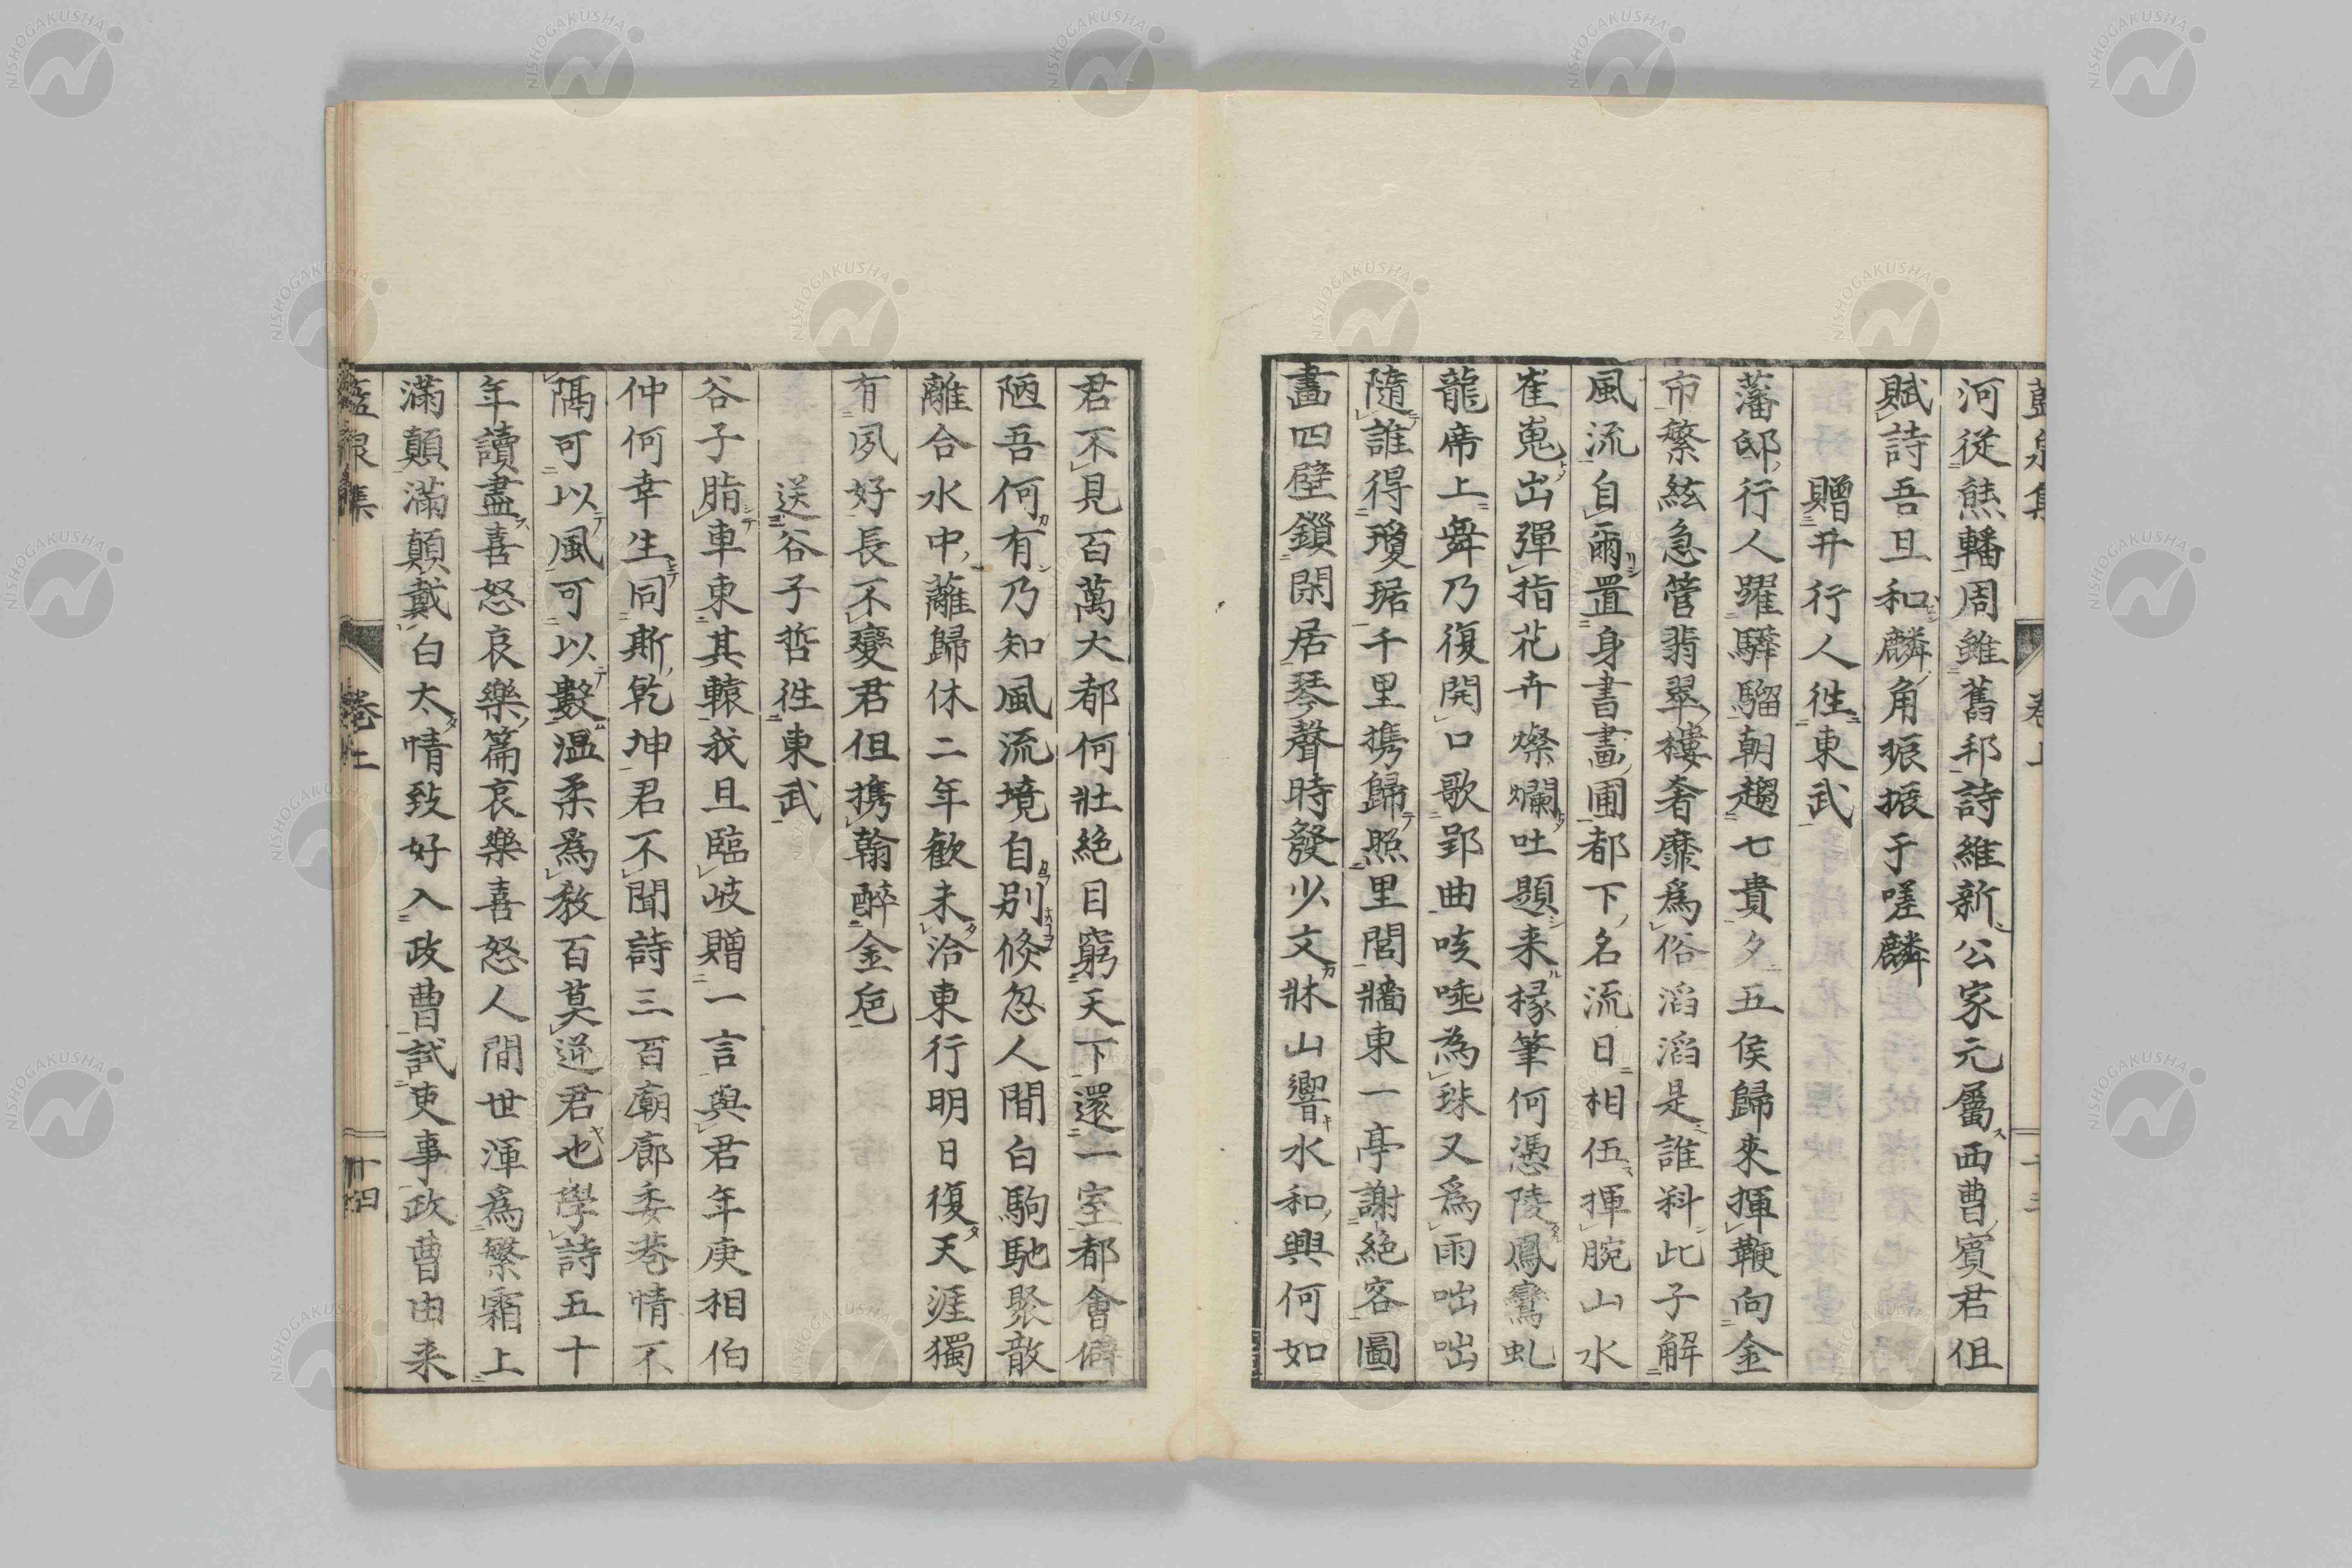 河従熊轓周雖舊邦詩維新公家元屬西曹賓君但
賦詩吾且和麟角振振于嗟麟
贈井行人徃東武
藩邸行人躍驊騮朝趨七貴夕五侯歸來揮鞭向金
市繁絃急管翡翠樓奢靡爲俗滔滔是誰料此子解
風流自爾置身書畫圃都下名流日相伍揮腕山水
崔嵬出彈指花卉燦爛吐題来椽筆何憑陵鳳鸞虬
龍席上舞乃復開口歌郢曲咳唾為珠又爲雨咄咄
隨誰得瓊琚千里携歸照里閭牆東一亭謝絶客圖
畫四壁鎖閑居琴聲時發少文牀山響水和興何如
君不見百萬大都何壯絶目窮天下還一室都會僻
陋吾何有乃知風流境自別倏忽人間白駒馳聚散
離合水中蘺歸休二年歓未洽東行明日復天涯獨
有夙好長不變君但携翰醉金卮
送谷子哲徃東武
谷子脂車東其轅我且臨岐贈一言與君年庚相伯
仲何幸生同斯乾坤君不聞詩三百廟廊委巷情不
隔可以風可以敷温柔爲教百莫逆君也學詩五十
年讀盡喜怒哀樂篇哀樂喜怒人間世渾爲繁霜上
滿顛滿顛戴白太情致好入政曹試吏事政曹由来
藍泉集 卷上 十四